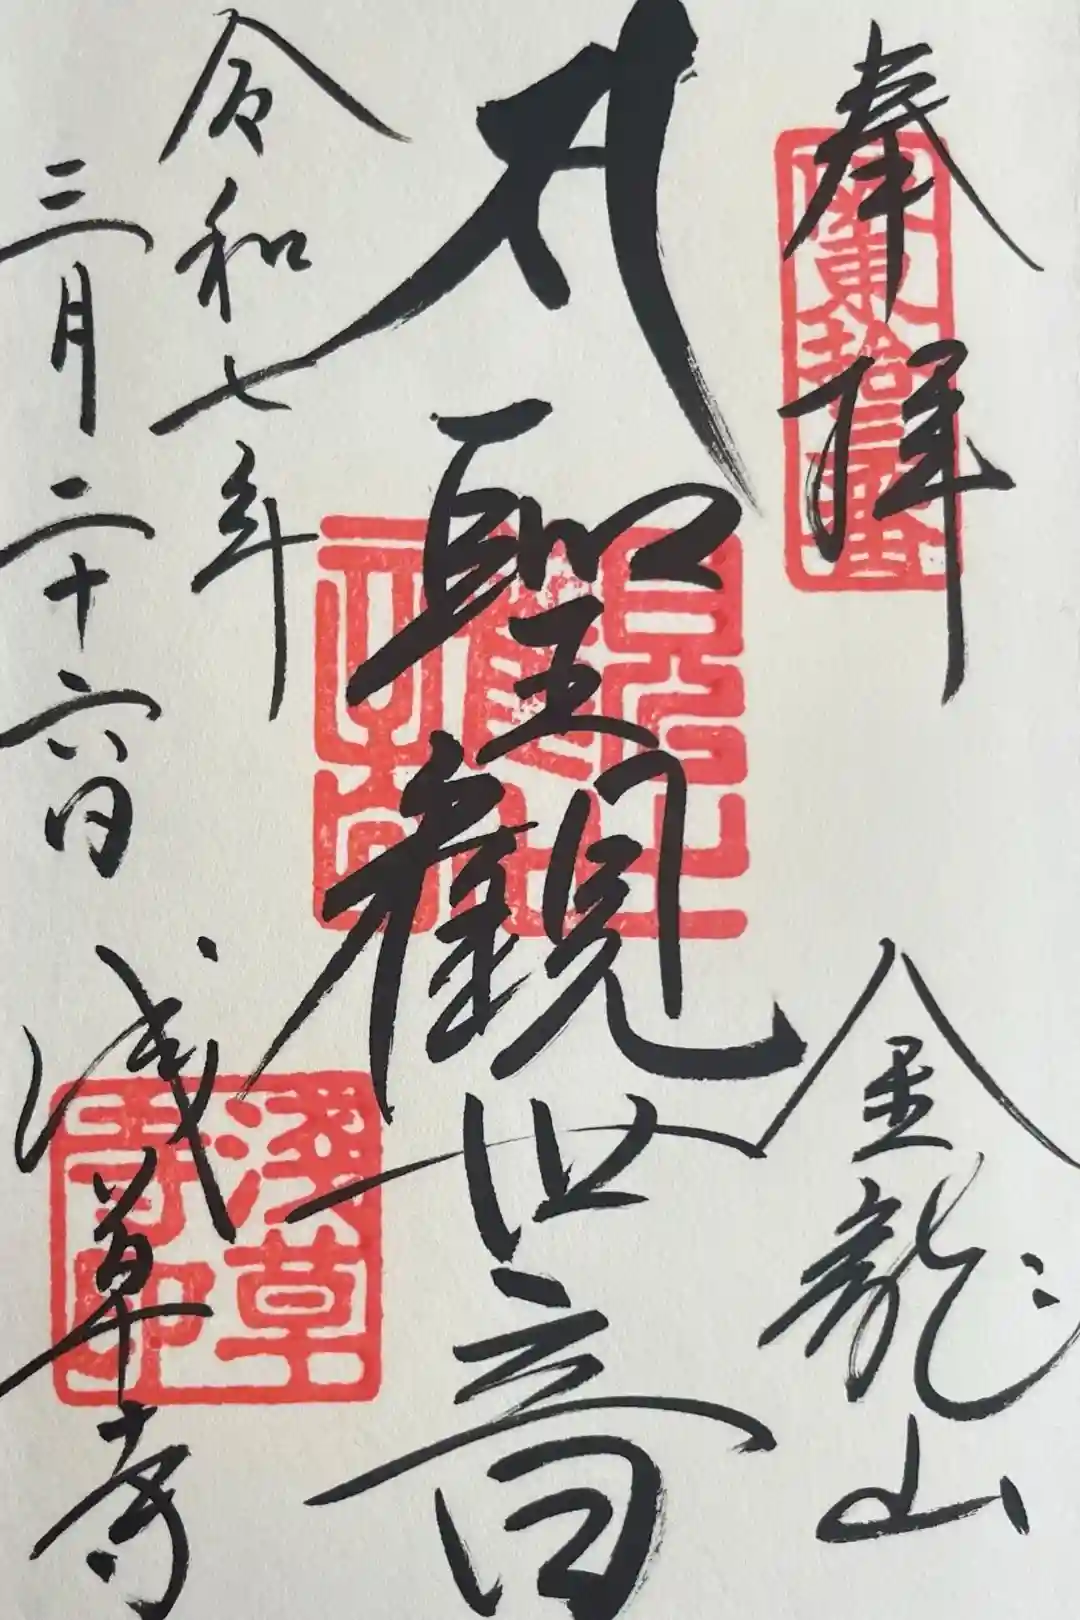 奉拝
坂東拾三番
金龍山
聖観世音
令和七年
三月二十六日
浅草寺
淺草寺印